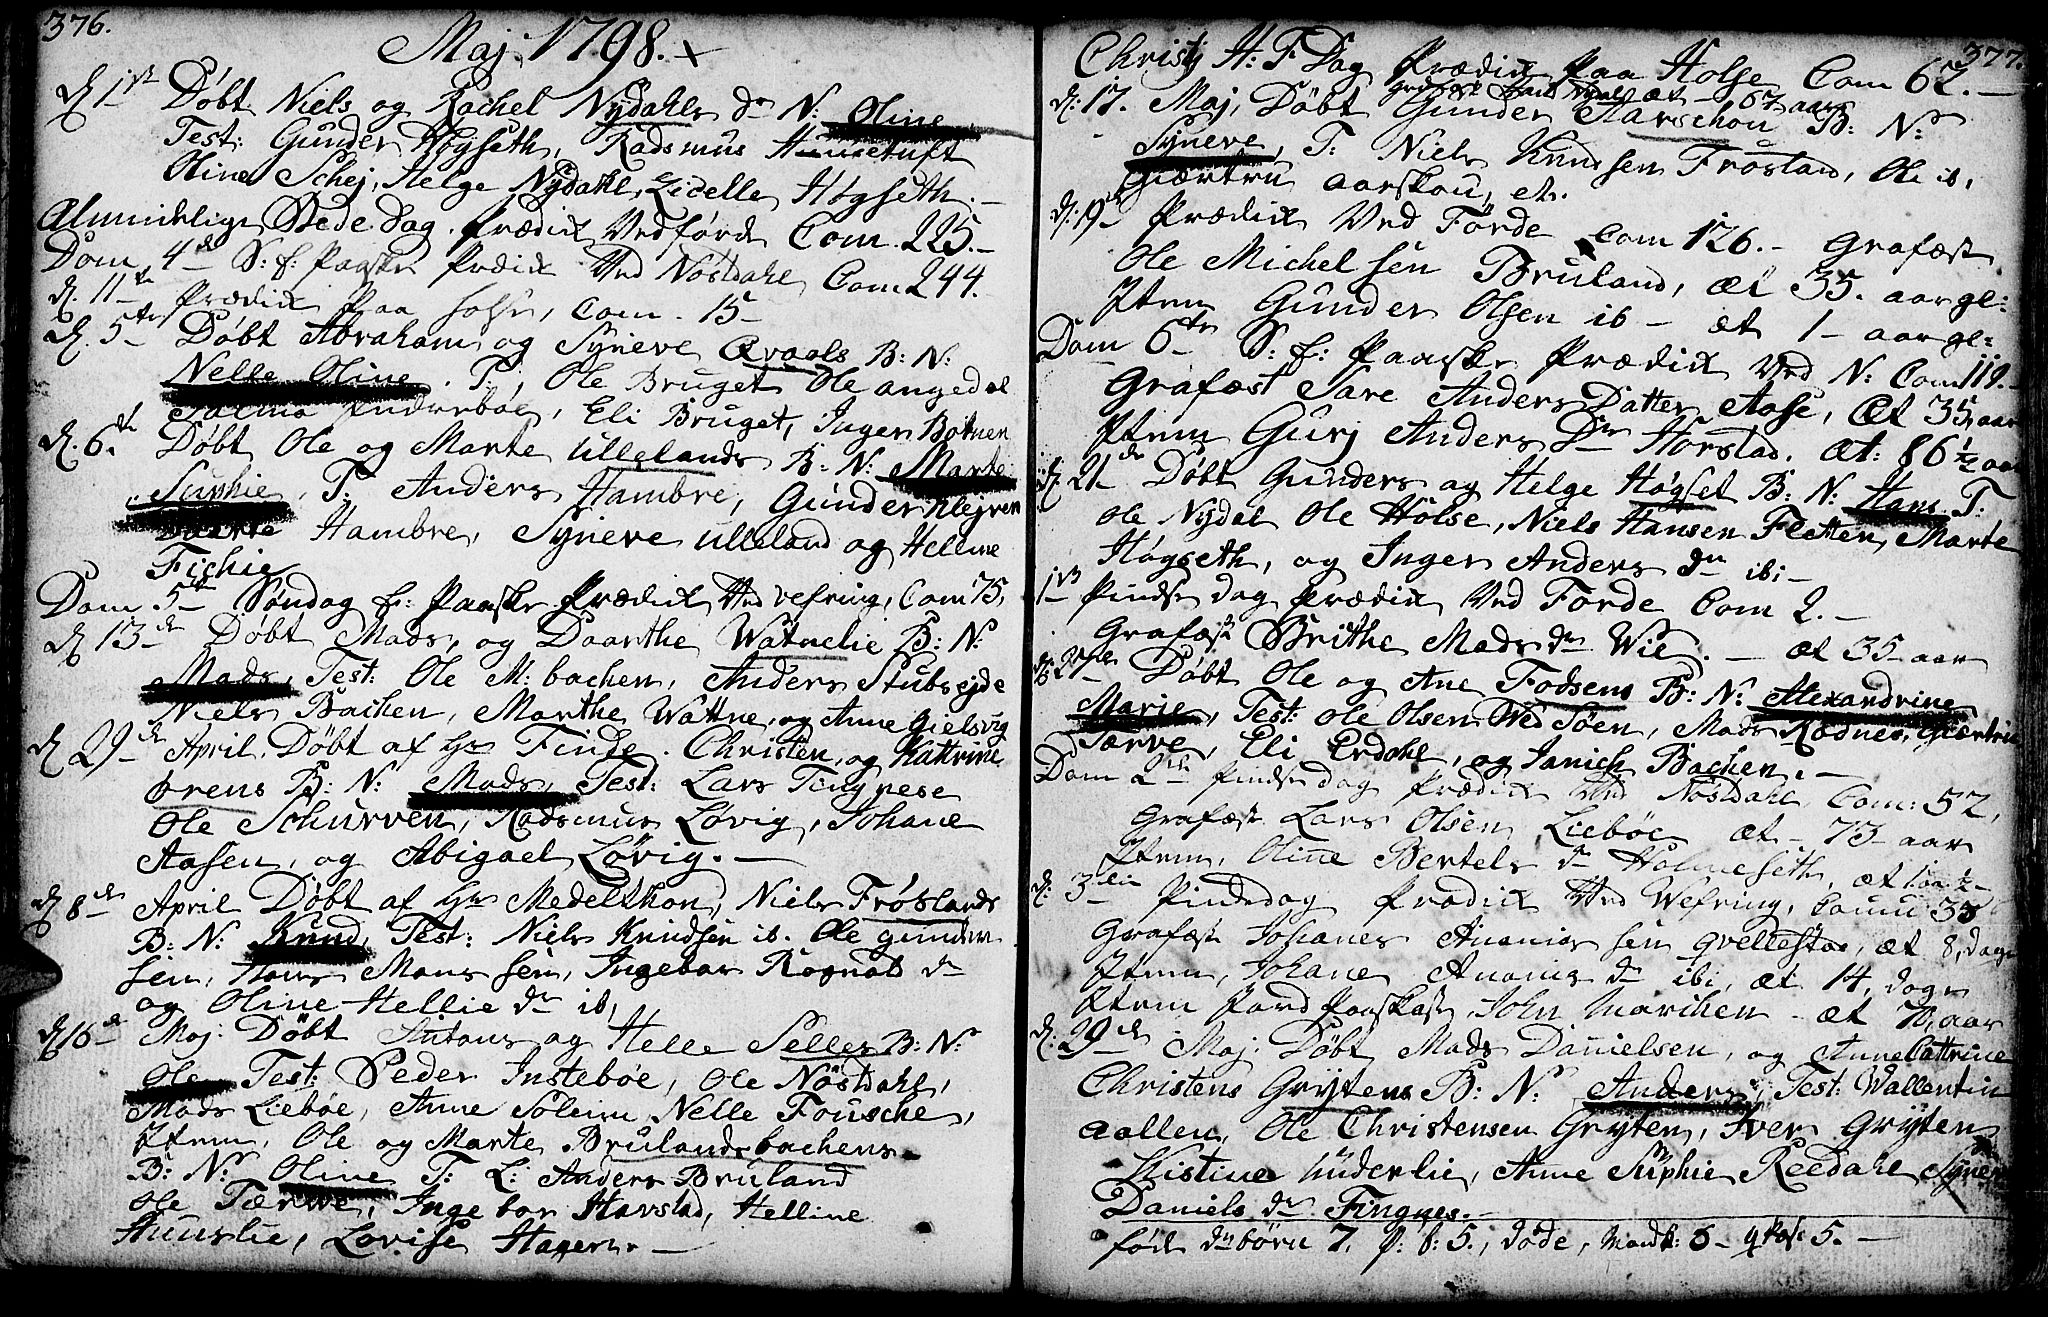 376.
Maj. 1798. +
d. 1ste Døbt Niels og Rachel Nÿdahls dr N: Oline
Test: Gunder Høgseth, Radsmus Hunnetuft
Oline Schej, Helge Nÿdahl, Zidelle Høgseth. –
Almindelige Bede Dag. Prædik Ved førde Com. 225. –
Dom 4de S: f: Paaske Prædik Ved Nøstdahl Com 244.
d. 11te Prædik Paa Holse, Com. 15 –
d. 5te Døbt Abraham og Sÿneve Qvaals B: N:
Nelle Oline. T: Ole Bruget Ole angedal
Eli Bruget, Inger Botnen
d. 6te Døbt Ole og Marte Ullelands B: N: Marte
Suphie, T: Anders Hambre, Gunder Klejven
Hambre, Sÿneve ulleland og Helline
Fichie
Dom 5te Søndag f: Paaske Prædik Ved vefring, Com 75,
d 13de Døbt Mads, og Daarthe Watnelie B: N:
Mads, Test: Ole M: bachen, Anders Stubsejde
Niels Bachen, Marthe Wattne, og Anne Gielsvig
d 29de April, Døbt af Hr Finde. Christen, og Kattrine
ørens B: N: Mads, Test: Lars Tingnese
Ole Schurven, Radsmus Løvig, Johane
Aasen, og Abigael Løvig. –
d 8de April Døbt af Hr Medelthon, Niels Frøslands
B: N: Knud, Test: Niels Knudsen ib. Ole gunder
sen, Hans Mons sen, Ingebor Rognald dr
og Oline Hellie dr ib,
d 16de Maj: Døbt Antons og Helle Selles B: N:
Ole Test: Peder Instebøe, Ole Nøstdahl,
Mads Liebøe, Anne Soleim Nelle Fousche,
Item, Ole og Marte Brulandsbachens
B: N: Oline T: L: Anders Bruland
Ole Tærve, Ingebor Harstad, Helline
Huuslie, Lovise Hagen. –
377.
Christj H: F Dag Prædik Paa Holse Com 62. –
æt – 67 aar
d: 17. Maj, Døbt Gunder Aarschou B: N:
Sÿneve, T: Niels Knudsen Frøstad, Ole ib,
Giærtru aarskou, etc.
d. 19de Prædik Ved Førde Com 126. – Grafæst
Ole Michelsen Bruland, æt 35. aar gl:
Item Gunder Olsen ib – æt 1 – aar gl:
Dom 6te S: f: Paaske Prædik Ved N: Com 119. –
Grafæst Sare Anders Datter Aase, Æt 35, aar
Item Gurj Anders Dr Horstad. æt: 86 ½ aar
d: 21de Døbt Gunders og Helge Høgset B: N: Hans T:
Ole Nÿdal Ole Holse, Niels Hansen Fletten, Marte
Høgseth, og Inger Anders dr ibi –
1ste Pindse dag Prædik Ved Førde Com 2. –
Grafæst Brithe Mads dr Wie. – æt 35 aar
d: 27de Døbt Ole og Ane Fodsens B: N: Alexandrine
Marie, Test: Ole Olsen Wed Søen, Mads Rødnes, Giærtru
Tærve, Eli Erdahl, og Janich Bachen. –
Dom 2den Pindse dag Prædik Ved Nøstdahl, Com: 52,
Grafæst Lars Olsen Liebøe æt – 73 – aar
Item, Oline Bertels dr Holmeseth, æt 1 aa: ½ –
d: 3die Pindsdag Prædik Ved Wefring, Comu 33
Grafæst Johanes Ananias sen qvellestad, æt 8, dage
Item, Johane Ananias dr ibi, æt 14, dage
Item Jord Paaskast John Marchen – æt 70, aar
d: 29de Maj. Døbt Mads Danielsen, og Anne Cattrine
Christens Grÿtens B: N: Anders, Test: Wallentin
aallen, Ole Christensen Grÿten, Iver Grÿten
Kistine Underlie, Anne Suphie Reedahl Sÿneve
Daniels dr Fingnes. –
fød dr børn 7. p: b: 5., døde, Mandk: 6 – qkøf: 5. –